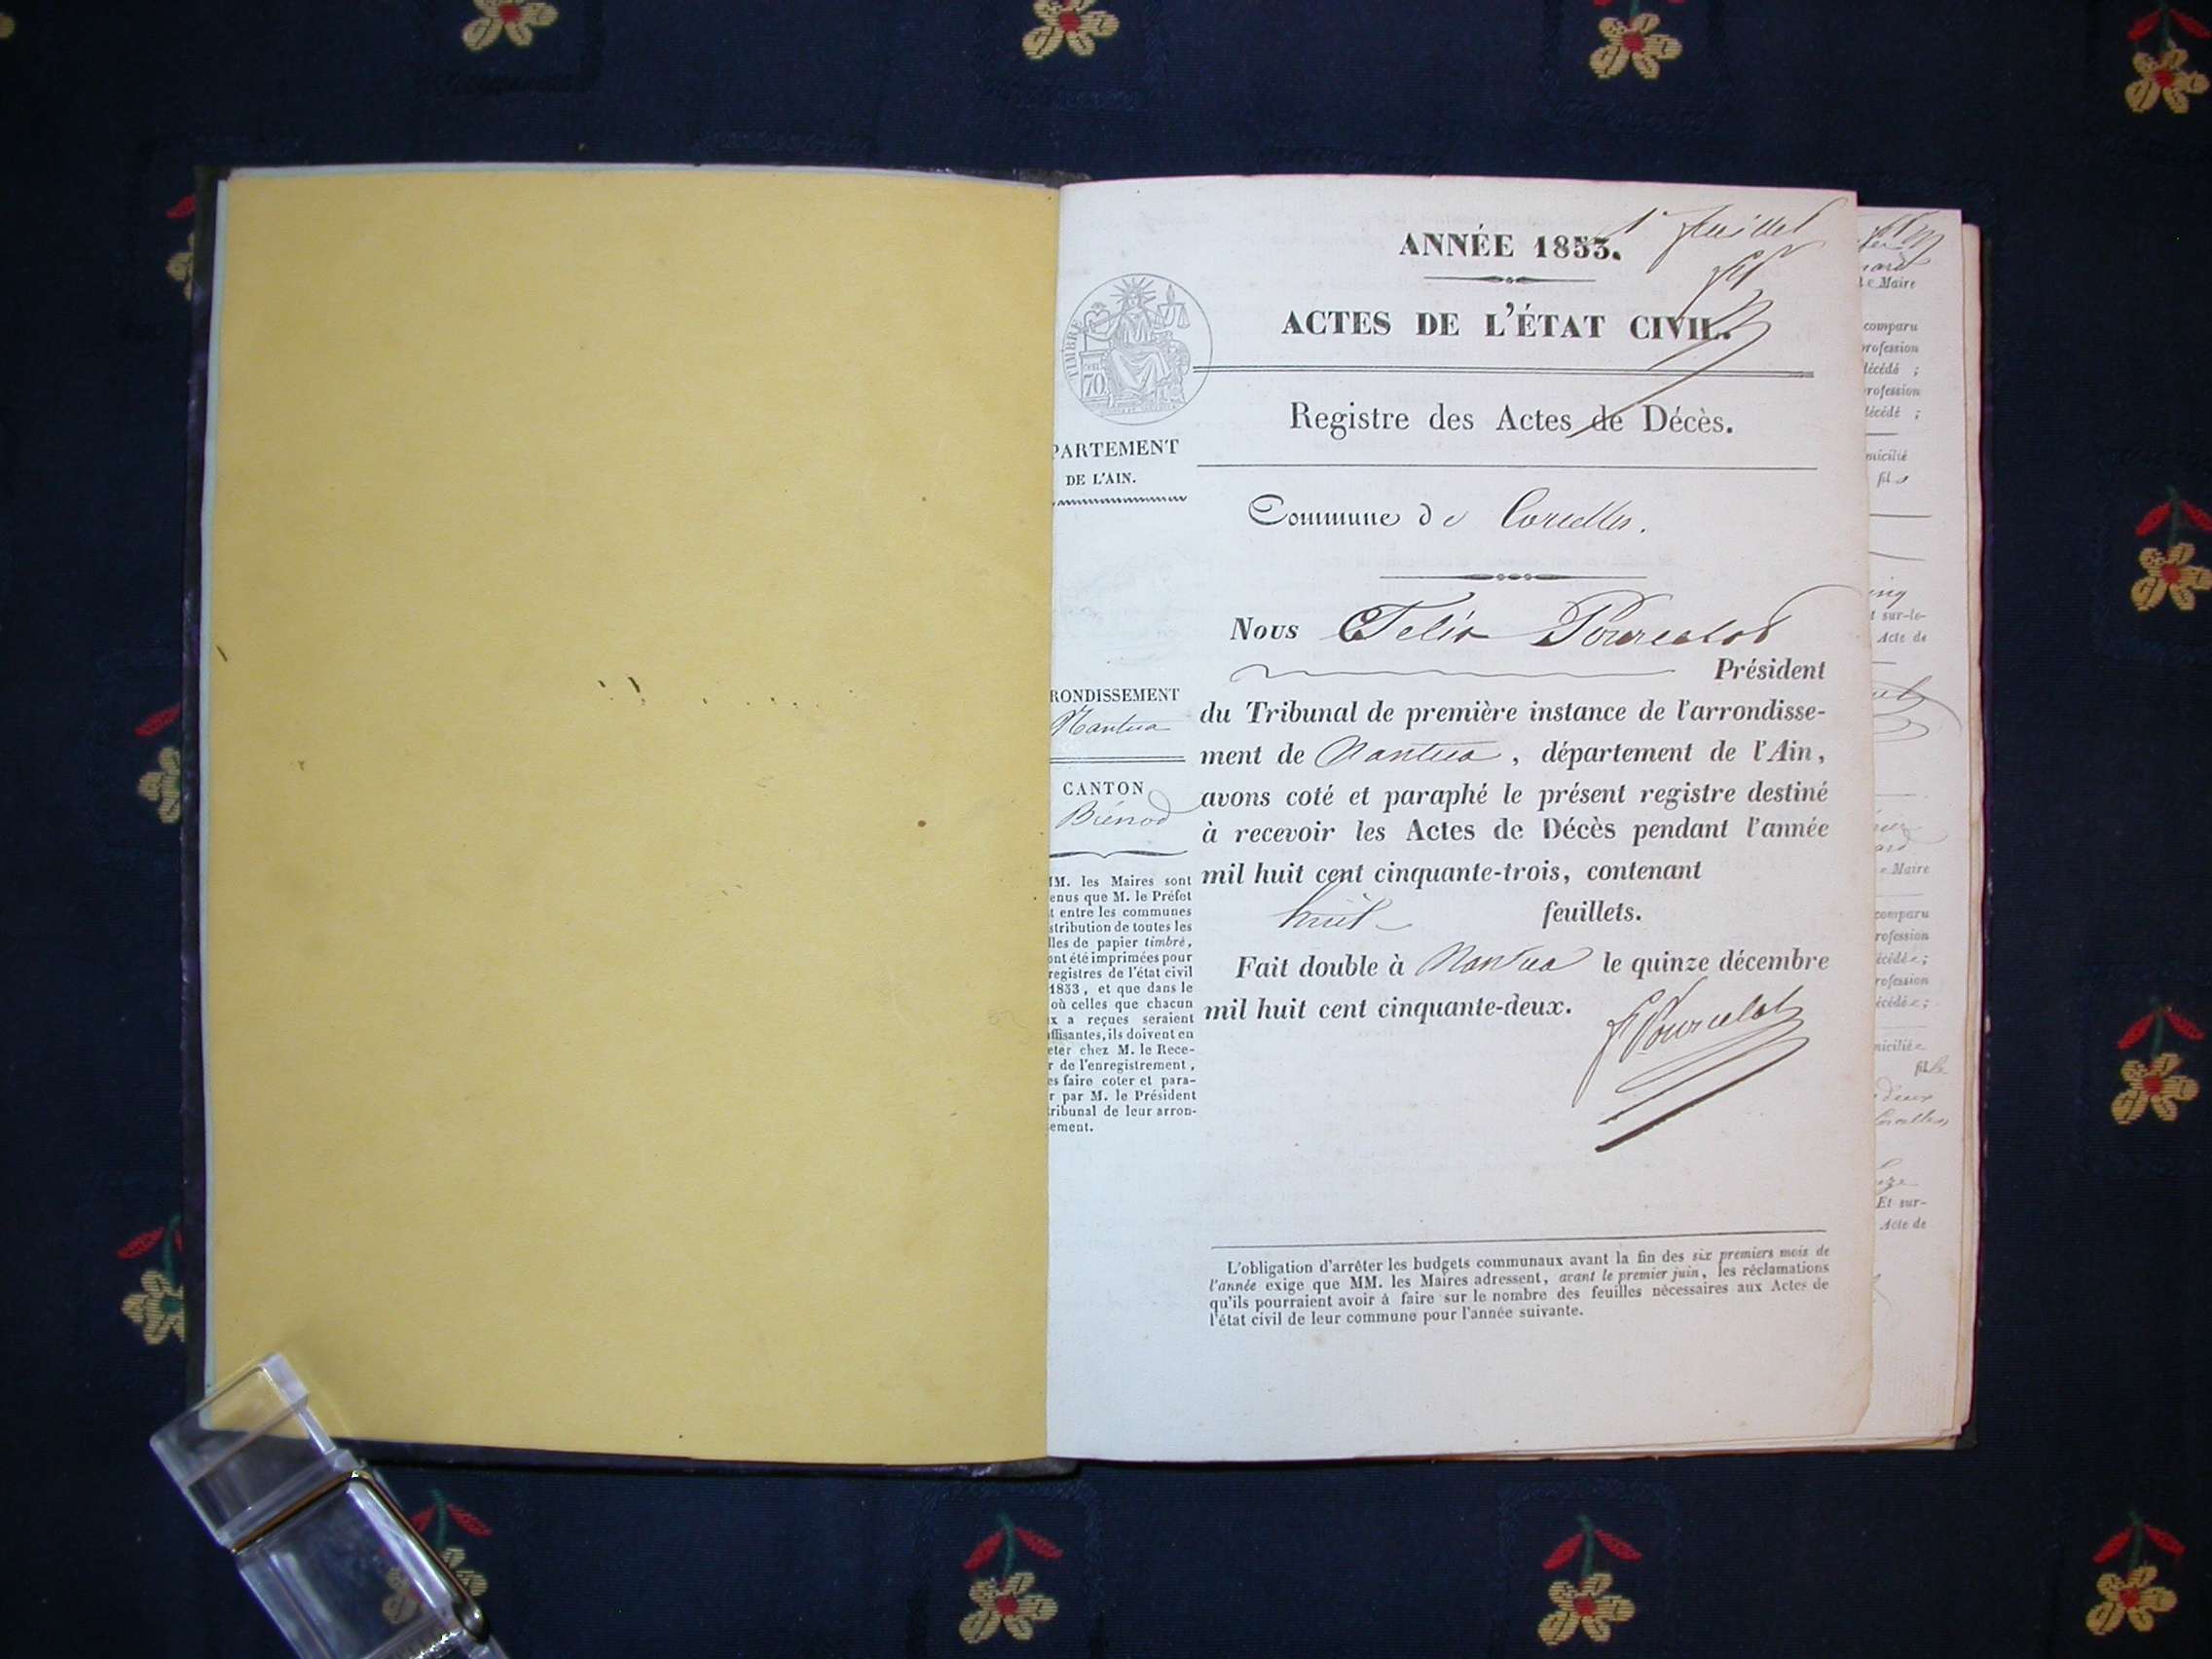 ANNÉE 1853.
1er feuillet
ACTES DE L'ÉTAT CIVIL.
TIMBRE
70
Registre des Actes de Décès.
PARTEMENT
DE L'AIN.
Commune de Corcelles.
Nous Félix Pourcelot
Président
du Tribunal de première instance de l'arrondisse-
ment de Nantua, département de l'Ain,
avons coté et paraphé le présent registre destiné
à recevoir les Actes de Décès pendant l'année
mil huit cent cinquante-trois, contenant
huit feuillets.
Fait double à Nantua le quinze décembre
mil huit cent cinquante-deux.
F Pourcelot
RONDISSEMENT
Nantua
CANTON
Brénod
MM. les Maires sont
enus que M. le Préfet
t entre les communes
stribution de toutes les
lles de papier timbré,
ont été imprimées pour
registres de l'état civil
1853, et que dans le
où celles que chacun
x a reçues seraient
ffisantes, ils doivent en
eter chez M. le Rece-
r de l'enregistrement,
es faire coter et para-
r par M. le Président
ribunal de leur arron-
ement.
L'obligation d'arrêter les budgets communaux avant la fin des six premiers mois de
l'année exige que MM. les Maires adressent, avant le premier juin, les réclamations
qu'ils pourraient avoir à faire sur le nombre des feuilles nécessaires aux Actes de
l'état civil de leur commune pour l'année suivante.
Maire
comparu
profession
décédé ;
profession
décédé ;
micilié
fil
sur-le-
Acte de
Maire
comparu
rofession
écédée ;
rofession
écédée ;
micilié
fille
deux
Corcelles
Et sur-
Acte de